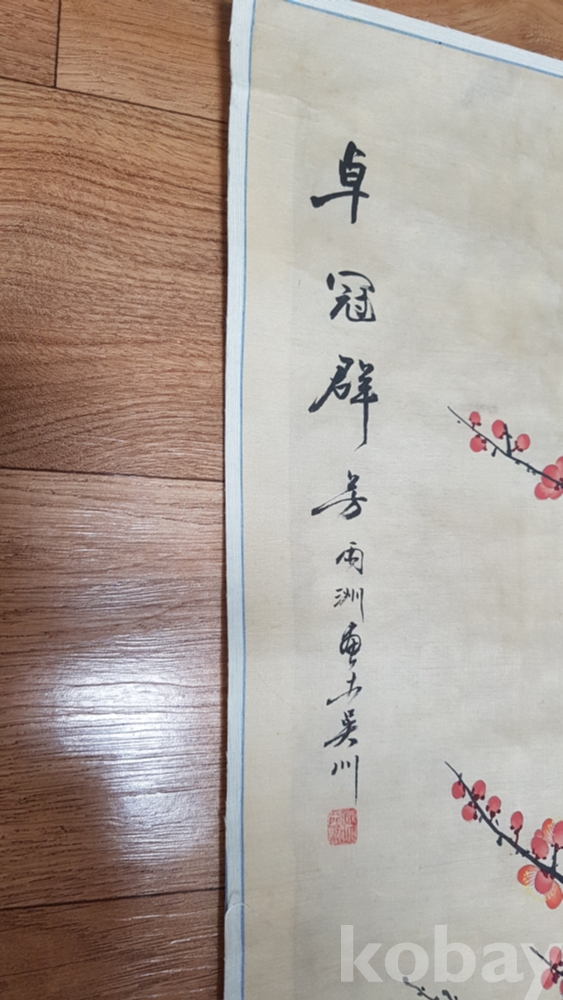 卓冠群芳 雨洲畫于吴川
kobay